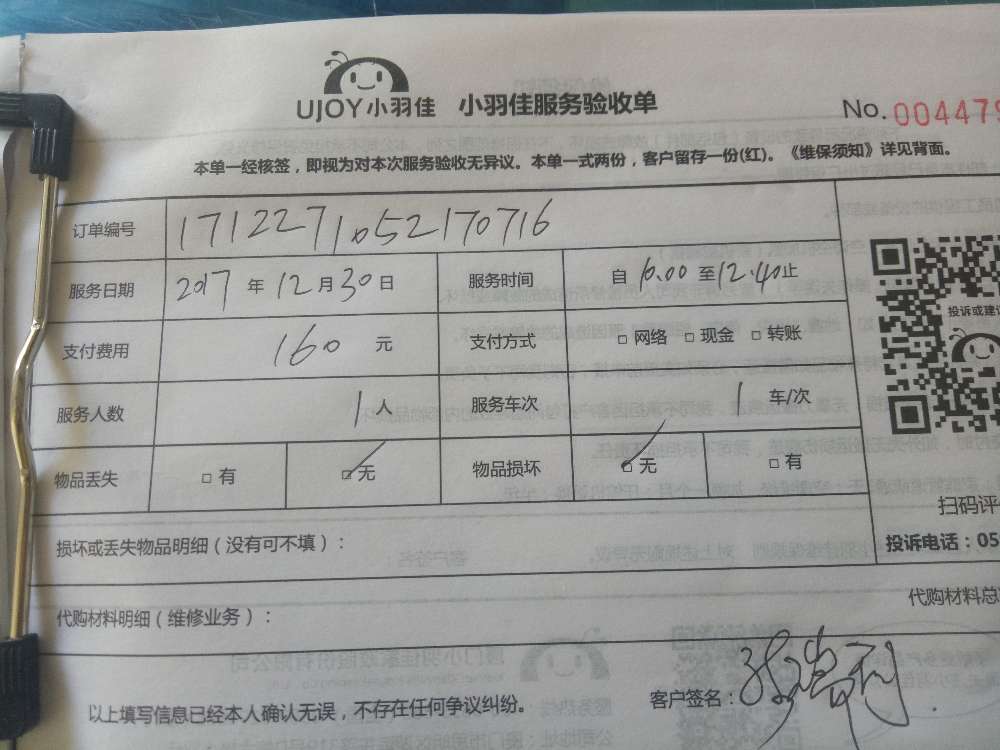 UJOY小羽佳 小羽佳服务验收单
No. 004479
本单一经核签，即视为对本次服务验收无异议。本单一式两份，客户留存一份(红)。《维保须知》详见背面。
订单编号 171227105217 0716
服务日期 2017 年 12 月 30 日 服务时间 自 10.00 至 12.40 止
支付费用 160 元 支付方式 □ 网络 □ 现金 □ 转账
投诉或建议
服务人数 1 人 服务车次 1 车/次
物品丢失 □ 有 □ 无 物品损坏 □ 无 □ 有
扫码评
损坏或丢失物品明细（没有可不填）：
投诉电话：05
代购材料明细（维修业务）：
代购材料总
以上填写信息已经本人确认无误，不存在任何争议纠纷。
客户签名：